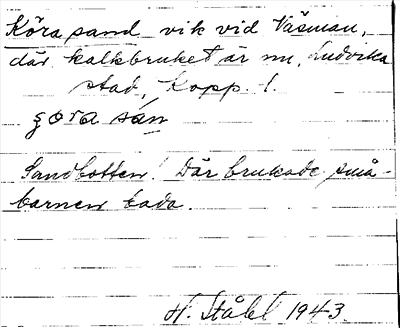 Köra sand vik vid Väsman,
där kalkbruket är nu, Ludvika
stad, Kopp. l.
sån
Sandbotten. Där brukade små-
barnen bada.
H. Ståhl 1943.